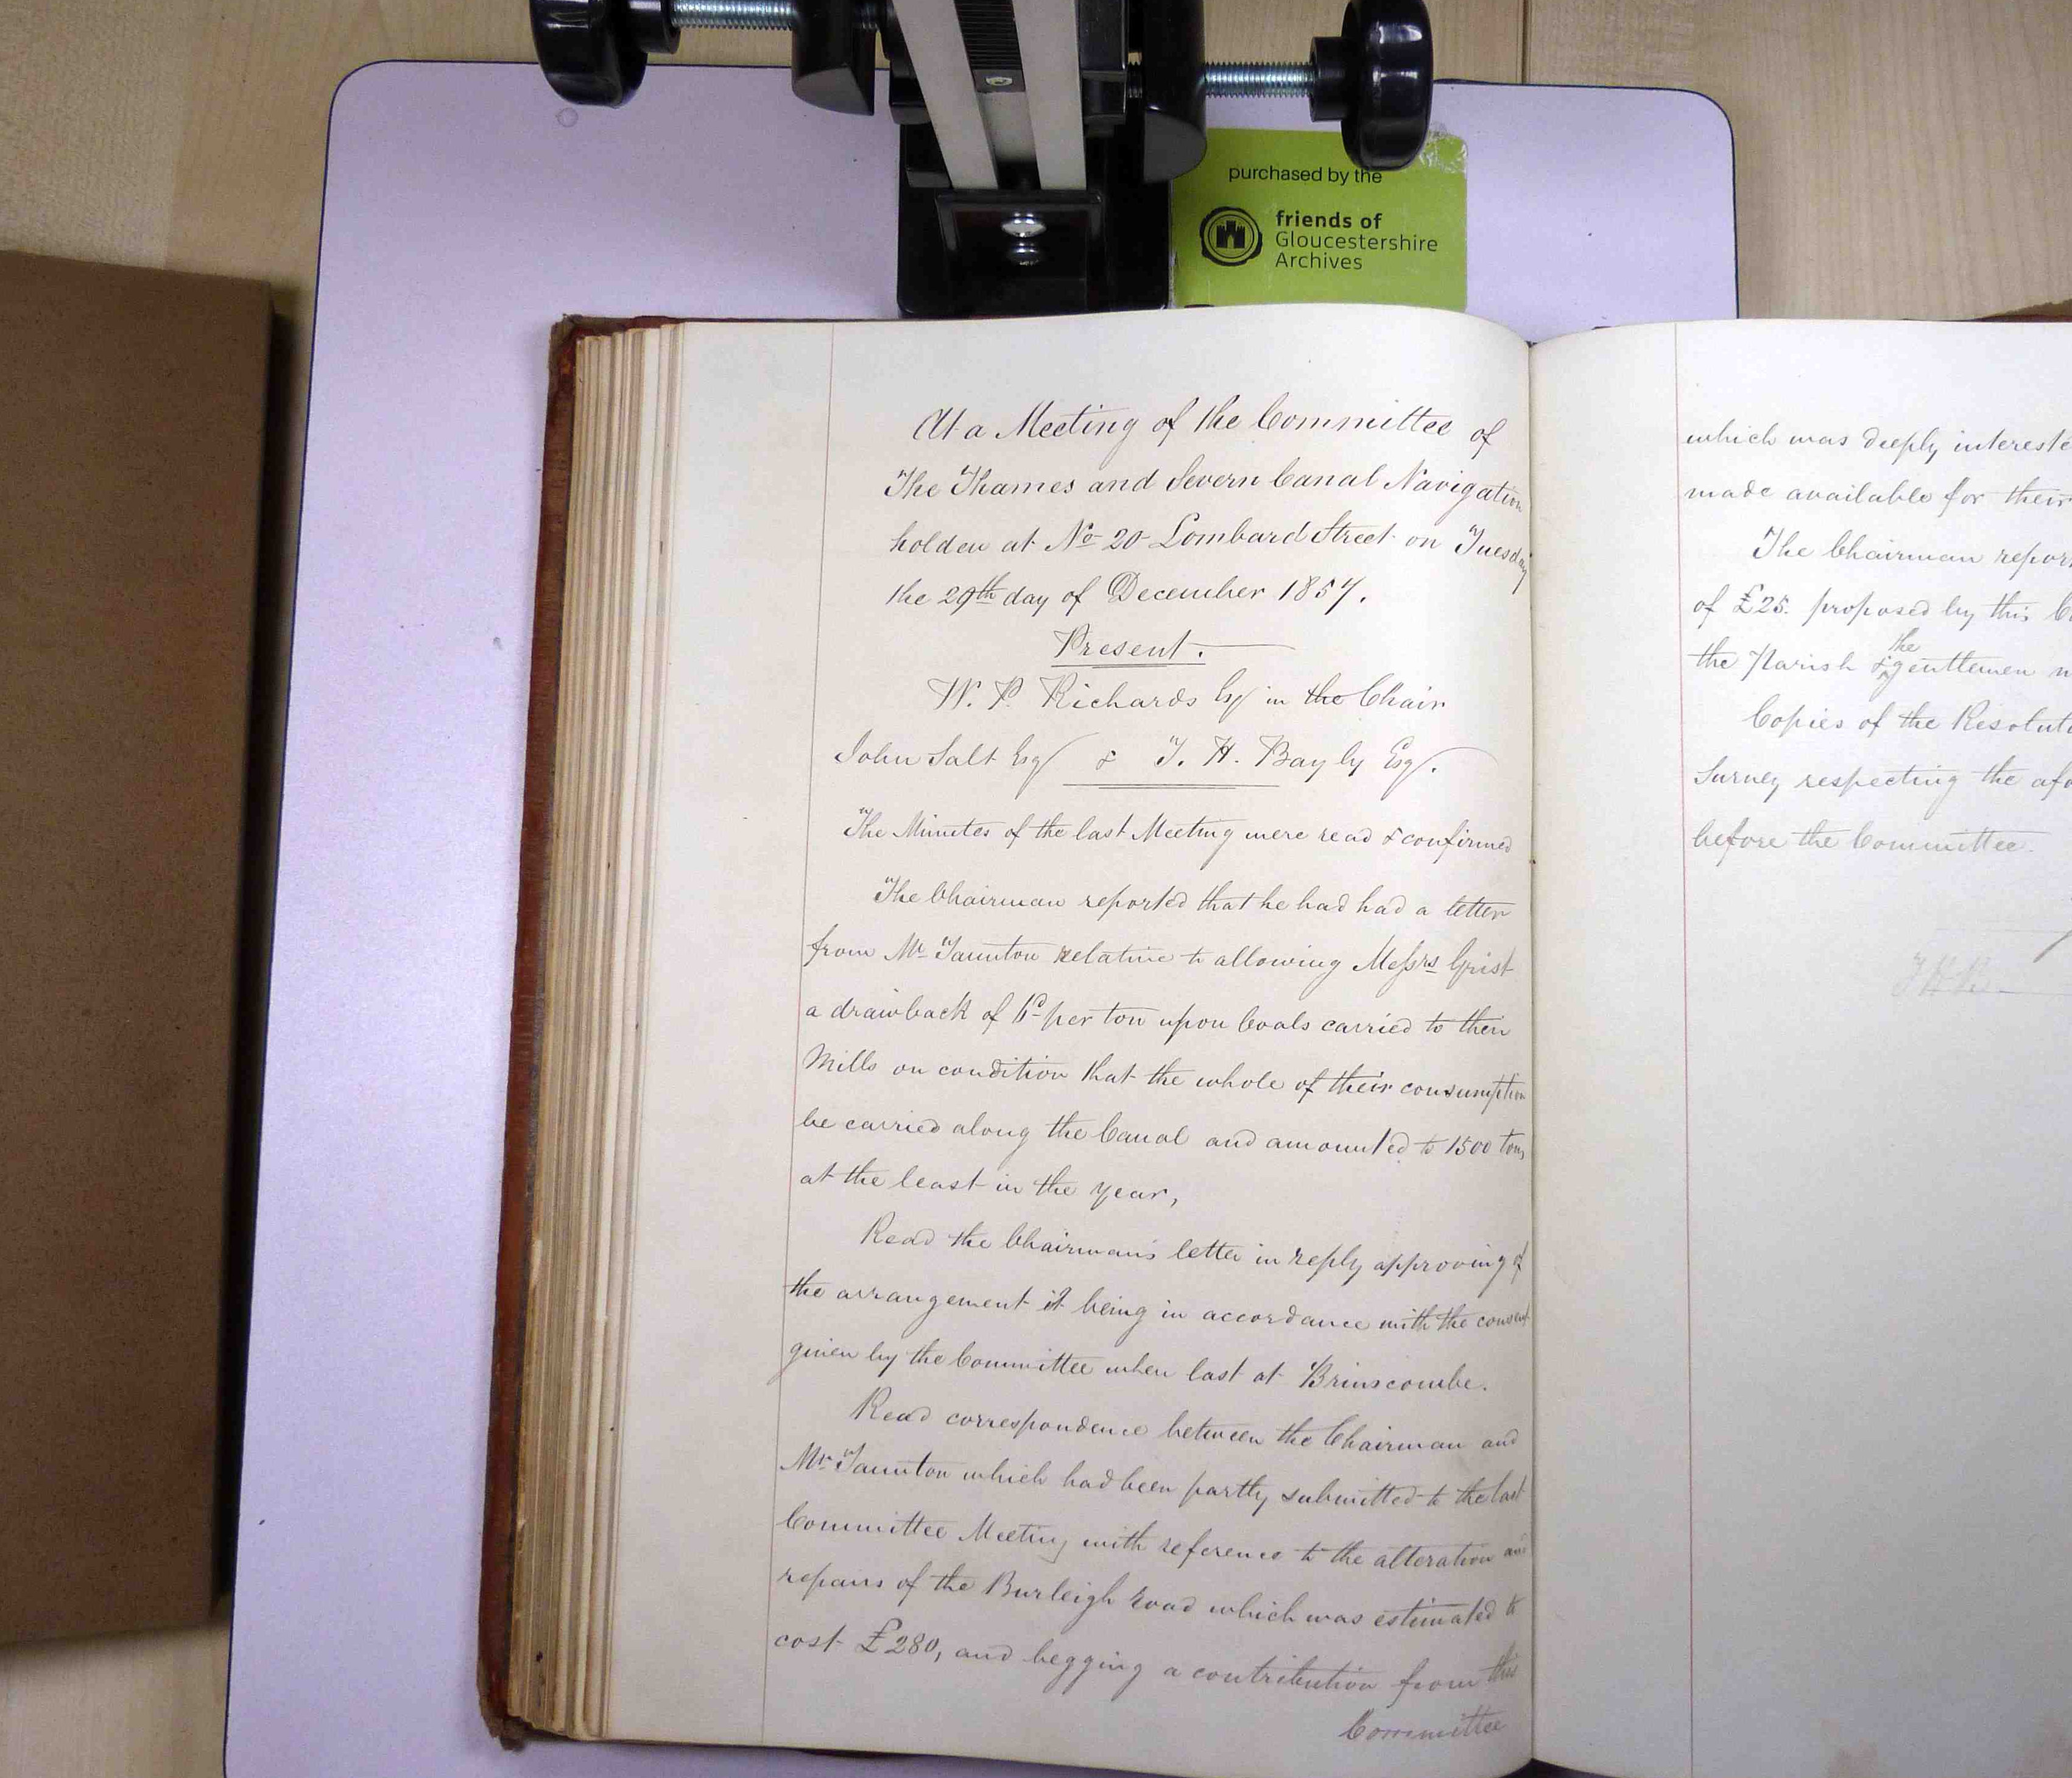 purchased by the
friends of
Gloucestershire
Archives
At a Meeting of the Committee of
The Thames and Severn Canal Navigation
holden at No 20 Lombard Street on Tuesday
the 29th day of December 1857.
Present.
W. P. Richards Esq in the Chair
John Salt Esq & T. H. Bayly Esq.
The Minutes of the last Meeting were read & confirmed
The Chairman reported that he had had a letter
from Mr Taunton relative to allowing Messrs Grist
a drawback of 6d per ton upon Coals carried to their
Mills on condition that the whole of their consumption
be carried along the Canal and amounted to 1500 tons
at the least in the year,
Read the Chairman's letter in reply approving of
the arrangement it being in accordance with the consent
given by the Committee when last at Brimscombe.
Read correspondence between the Chairman and
Mr Taunton which had been partly submitted to the last
Committee Meeting with reference to the alteration and
repairs of the Burleigh road which was estimated to
cost £280, and begging a contribution from this
Committee
which was deeply intereste
made available for their
The Chairman repor
of £25. proposed by this C
the Parish & the gentlemen
Copies of the Resolut
Survey respecting the afo
before the Committee.